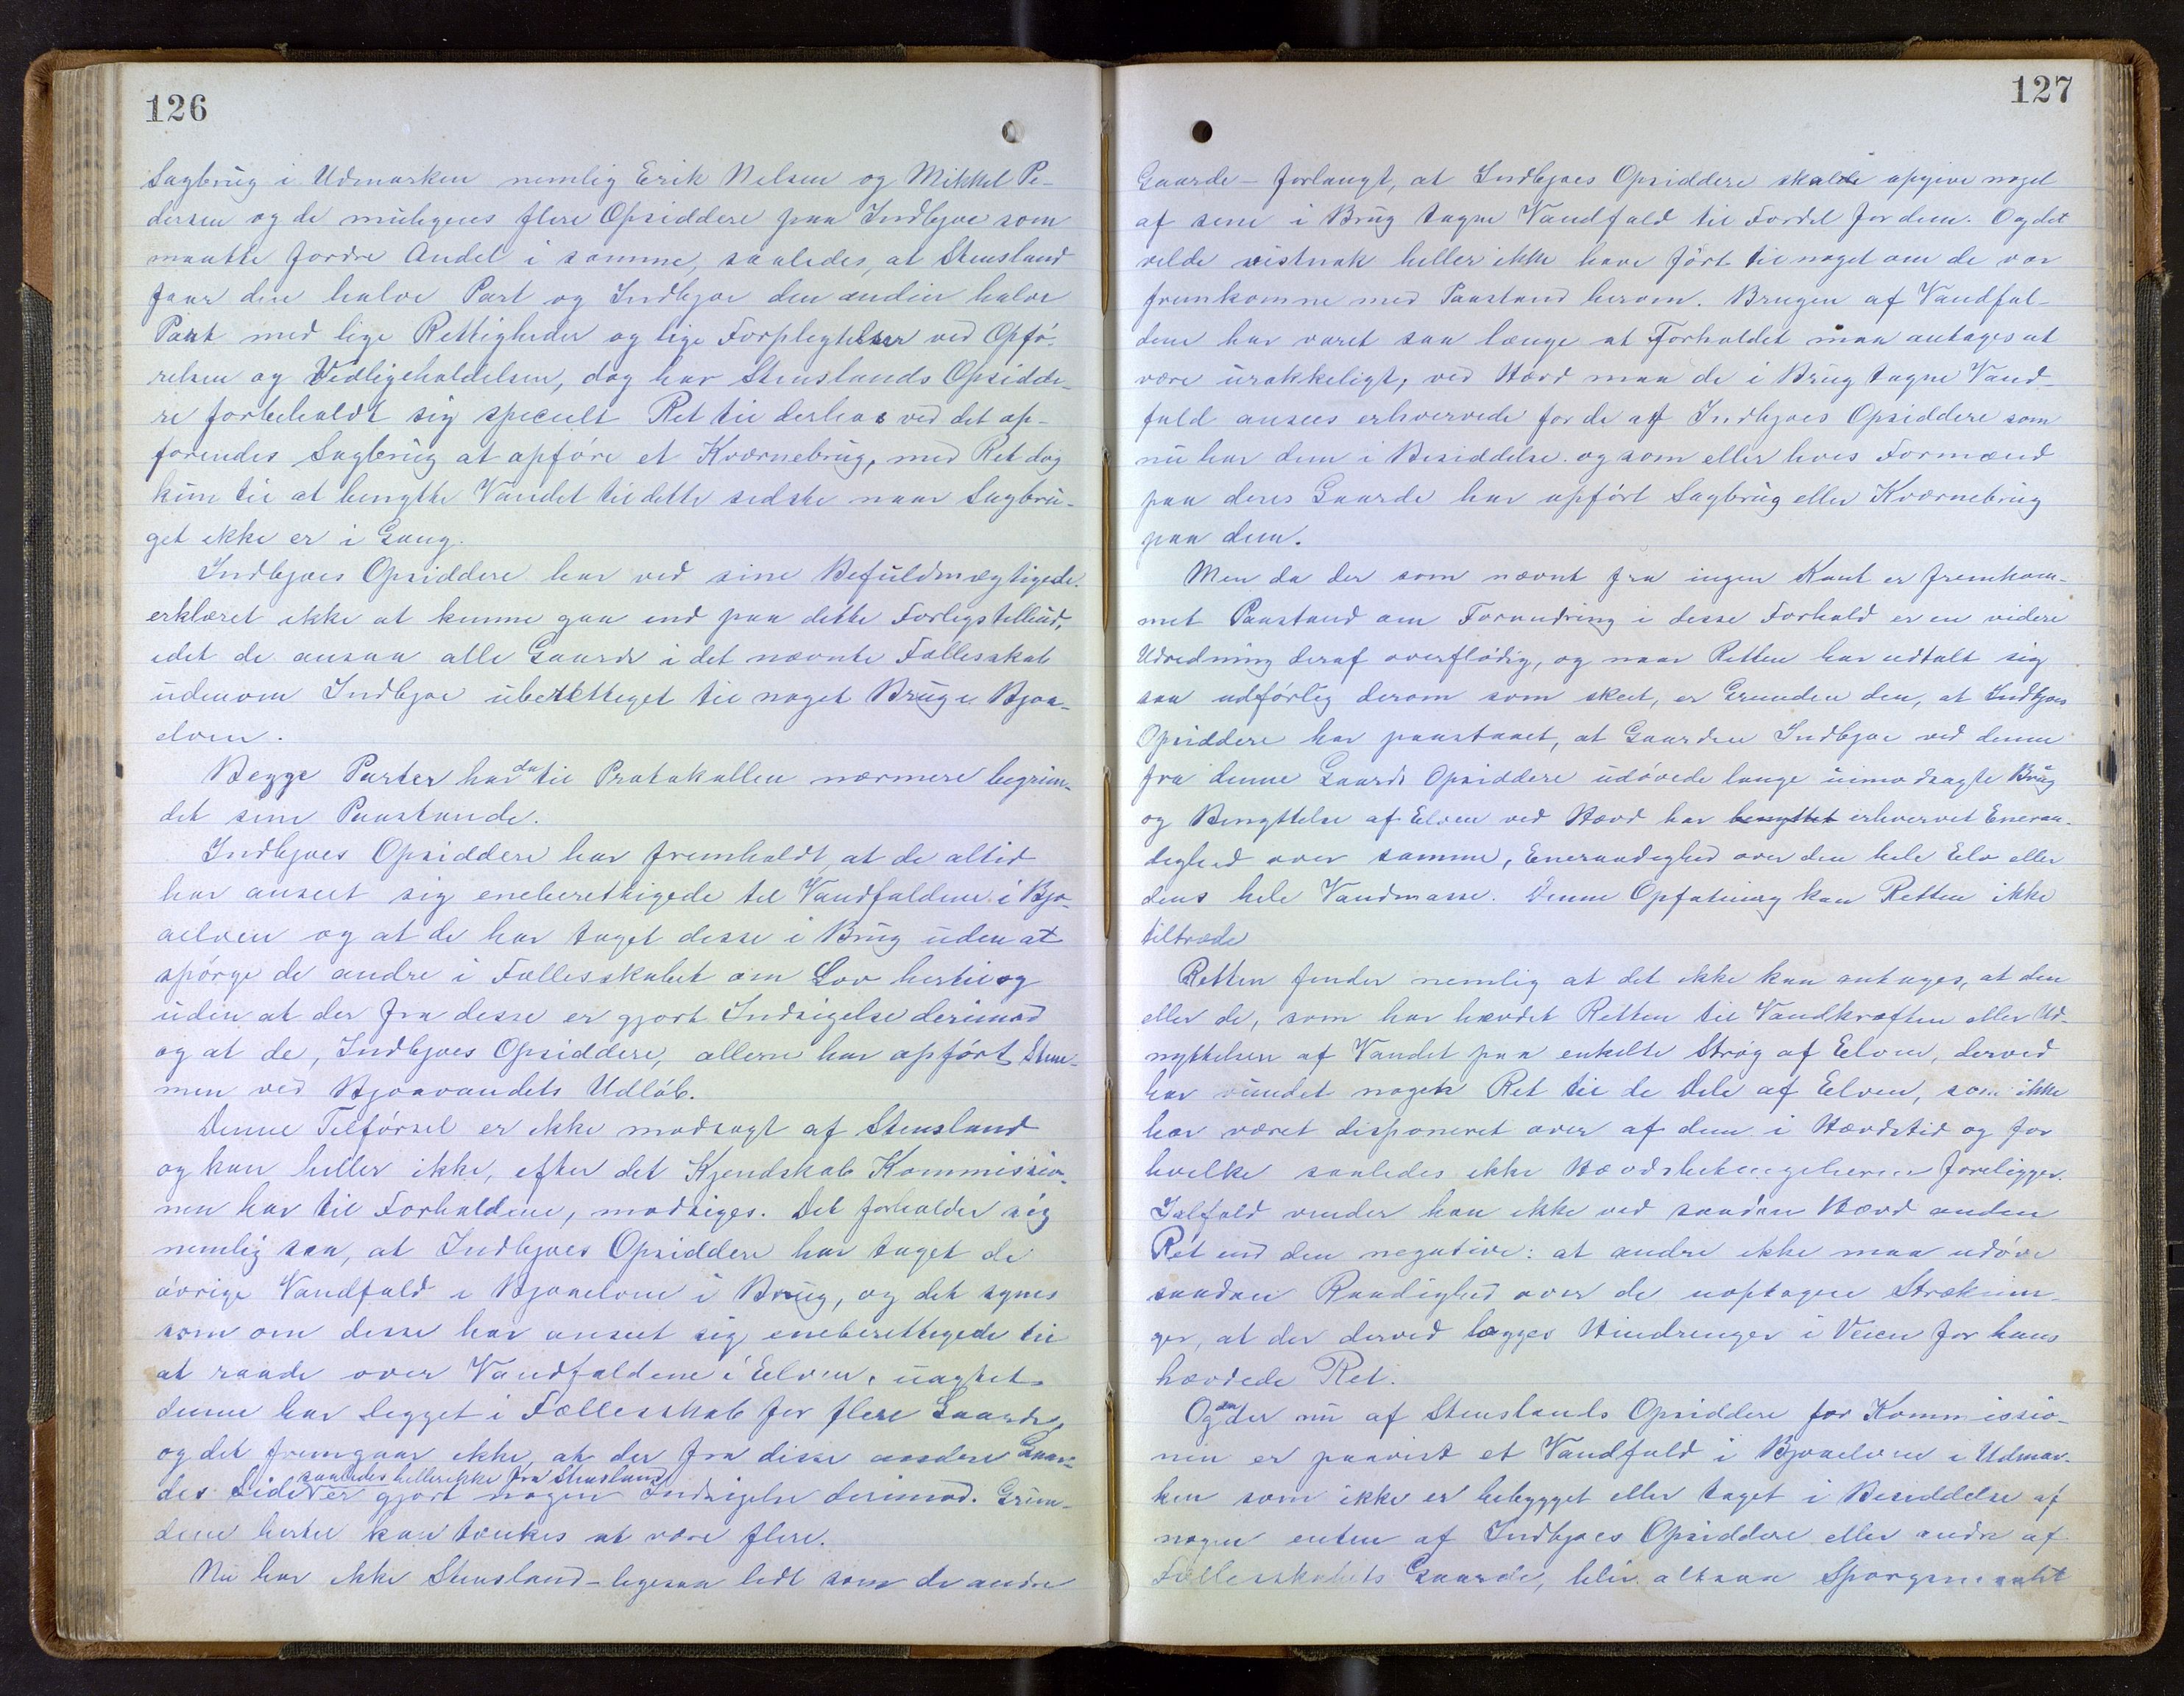 126
Sagbrug i Udmarken nemlig Erik Nelsen og Mikkel Pe-
dersen og de muligens flere Opsiddere paa Indbjoe som
maatte fordre Andel i samme, saaledes, at Stensland
faar den halve Part og Indbjoe den anden halve
Part med lige Rettigheder og lige Forplegtelser ved Opfø-
relsen og Vedligeholdelsen, dog har Stenslands Opsidde-
re forbeholdt sig specielt Ret til derhos ved det op-
førendes Sagbrug at opføre et Kværnebrug, med Ret dog
kun til at benytte Vandet til dette sidste naar Sagbru-
get ikke er i Gang.
Indbjoes Opsiddere har ved sine Befuldmægtigede
erklæret ikke at kunne gaa ind paa dette Forligstilbud,
idet de ansaa alle Gaarde i det nævnte Fællesskab
udenom Indbjoe uberettiget til noget Brug i Bjoa-
elven.
Begge Parter har da til Protokollen nærmere begrun-
det sine Paastande.
Indbjoes Opsiddere har fremholdt, at de altid
har anseet sig eneberettigede til Vandfaldene i Bjo-
aelven og at de har taget disse i Brug uden at
spørge de andre i Fællesskabet om Lov hertil og
uden at der fra disse er gjort Indsigelse derimod
og at de, Indbjoes Opsiddere, allene har opført Stem-
men ved Bjoavandets Udløb.
Denne Tilførsel er ikke modsagt af Stensland
og kan heller ikke, efter det Kjendskab Kommissio-
nen har til Forholdene, modsiges. Det forholder sig
nemlig saa, at Indbjoes Opsiddere har taget de
øvrige Vandfald i Bjoaelven i Brug, og det synes
som om disse har anseet sig eneberettigede til
at raade over Vandfaldene i Elven, uagtet
denne har ligget i Fællesskab for flere Gaarde,
og det fremgaar ikke, at der fra disse andre Gaar-
saaledes heller ikke fra Stensland
des Side er gjort nogen Indsigelse derimod. Grun-
dene hertil kan tænkes at være flere.
Nu har ikke Stensland - ligesaa lidt som de andre
127
Gaarde - forlangt, at Indbjoes Opsiddere skulde opgive noget
af sine i Brug tagne Vandfald til Fordel for dem. Og det
vilde vistnok heller ikke have ført til noget om de var
fremkomne med Paastand herom. Brugen af Vandfal-
dene har varet saa længe at Forholdet maa antages at
være urokkeligt, ved Hævd maa de i Brug tagne Vand-
fald ansees erhvervede for de af Indbjoes Opsiddere som
nu har dem i Besiddelse og som eller hves Formænd
paa deres Gaarde har opført Sagbrug eller Kværnebrug
paa dem.
Men da der som nævnt fra ingen Kant er fremkom-
met Paastand om Forandring i disse Forhold er en videre
Udredning deraf overflødig, og naar Retten har udtalt sig
saa udførlig derom som skeet, er Grunden den, at Indbjoes
Opsiddere har paastaaet, at Gaarden Indbjoe ved denne
fra denne Gaards Opsiddere udøvede lange uimodsagte Brug
og Benyttelse af Elven ved Hævd har benyttet erhvervet Eneraa-
dighed over samme, Eneraadighed over den hele Elv eller
dens hele Vandmasse. Denne Opfatning kan Retten ikke
tiltræde
Retten finder nemlig at det ikke kan antages, at den
eller de, som har hævdet Retten til Vandkraften eller Ud-
nyttelsen af Vandet paa enkelte Strøg af Elven, derved
har vundet nogen Ret til de Dele af Elven, som ikke
har været disponeret over af dem i Hævdstid og for
hvilke saaledes ikke Hævdsbetingelserne foreligger.
Ialfald vinder han ikke ved saadan Hævd anden
Ret end den negative: at andre ikke maa udøve
saadan Raadighed over de uoptagne Stræknin-
ger, at der derved lægges Hindringer i Veien for hans
hævdede Ret.
Og da der nu af Stenslands Opsiddere for Kommissio-
nen er paavist et Vandfald i Bjoaelven i Udmar-
ken som ikke er bebygget eller taget i Besiddelse af
nogen enten af Indbjoes Opsiddere eller andre af
Fællesskabets Gaarde, bliver altsaa Spørgsmaalet